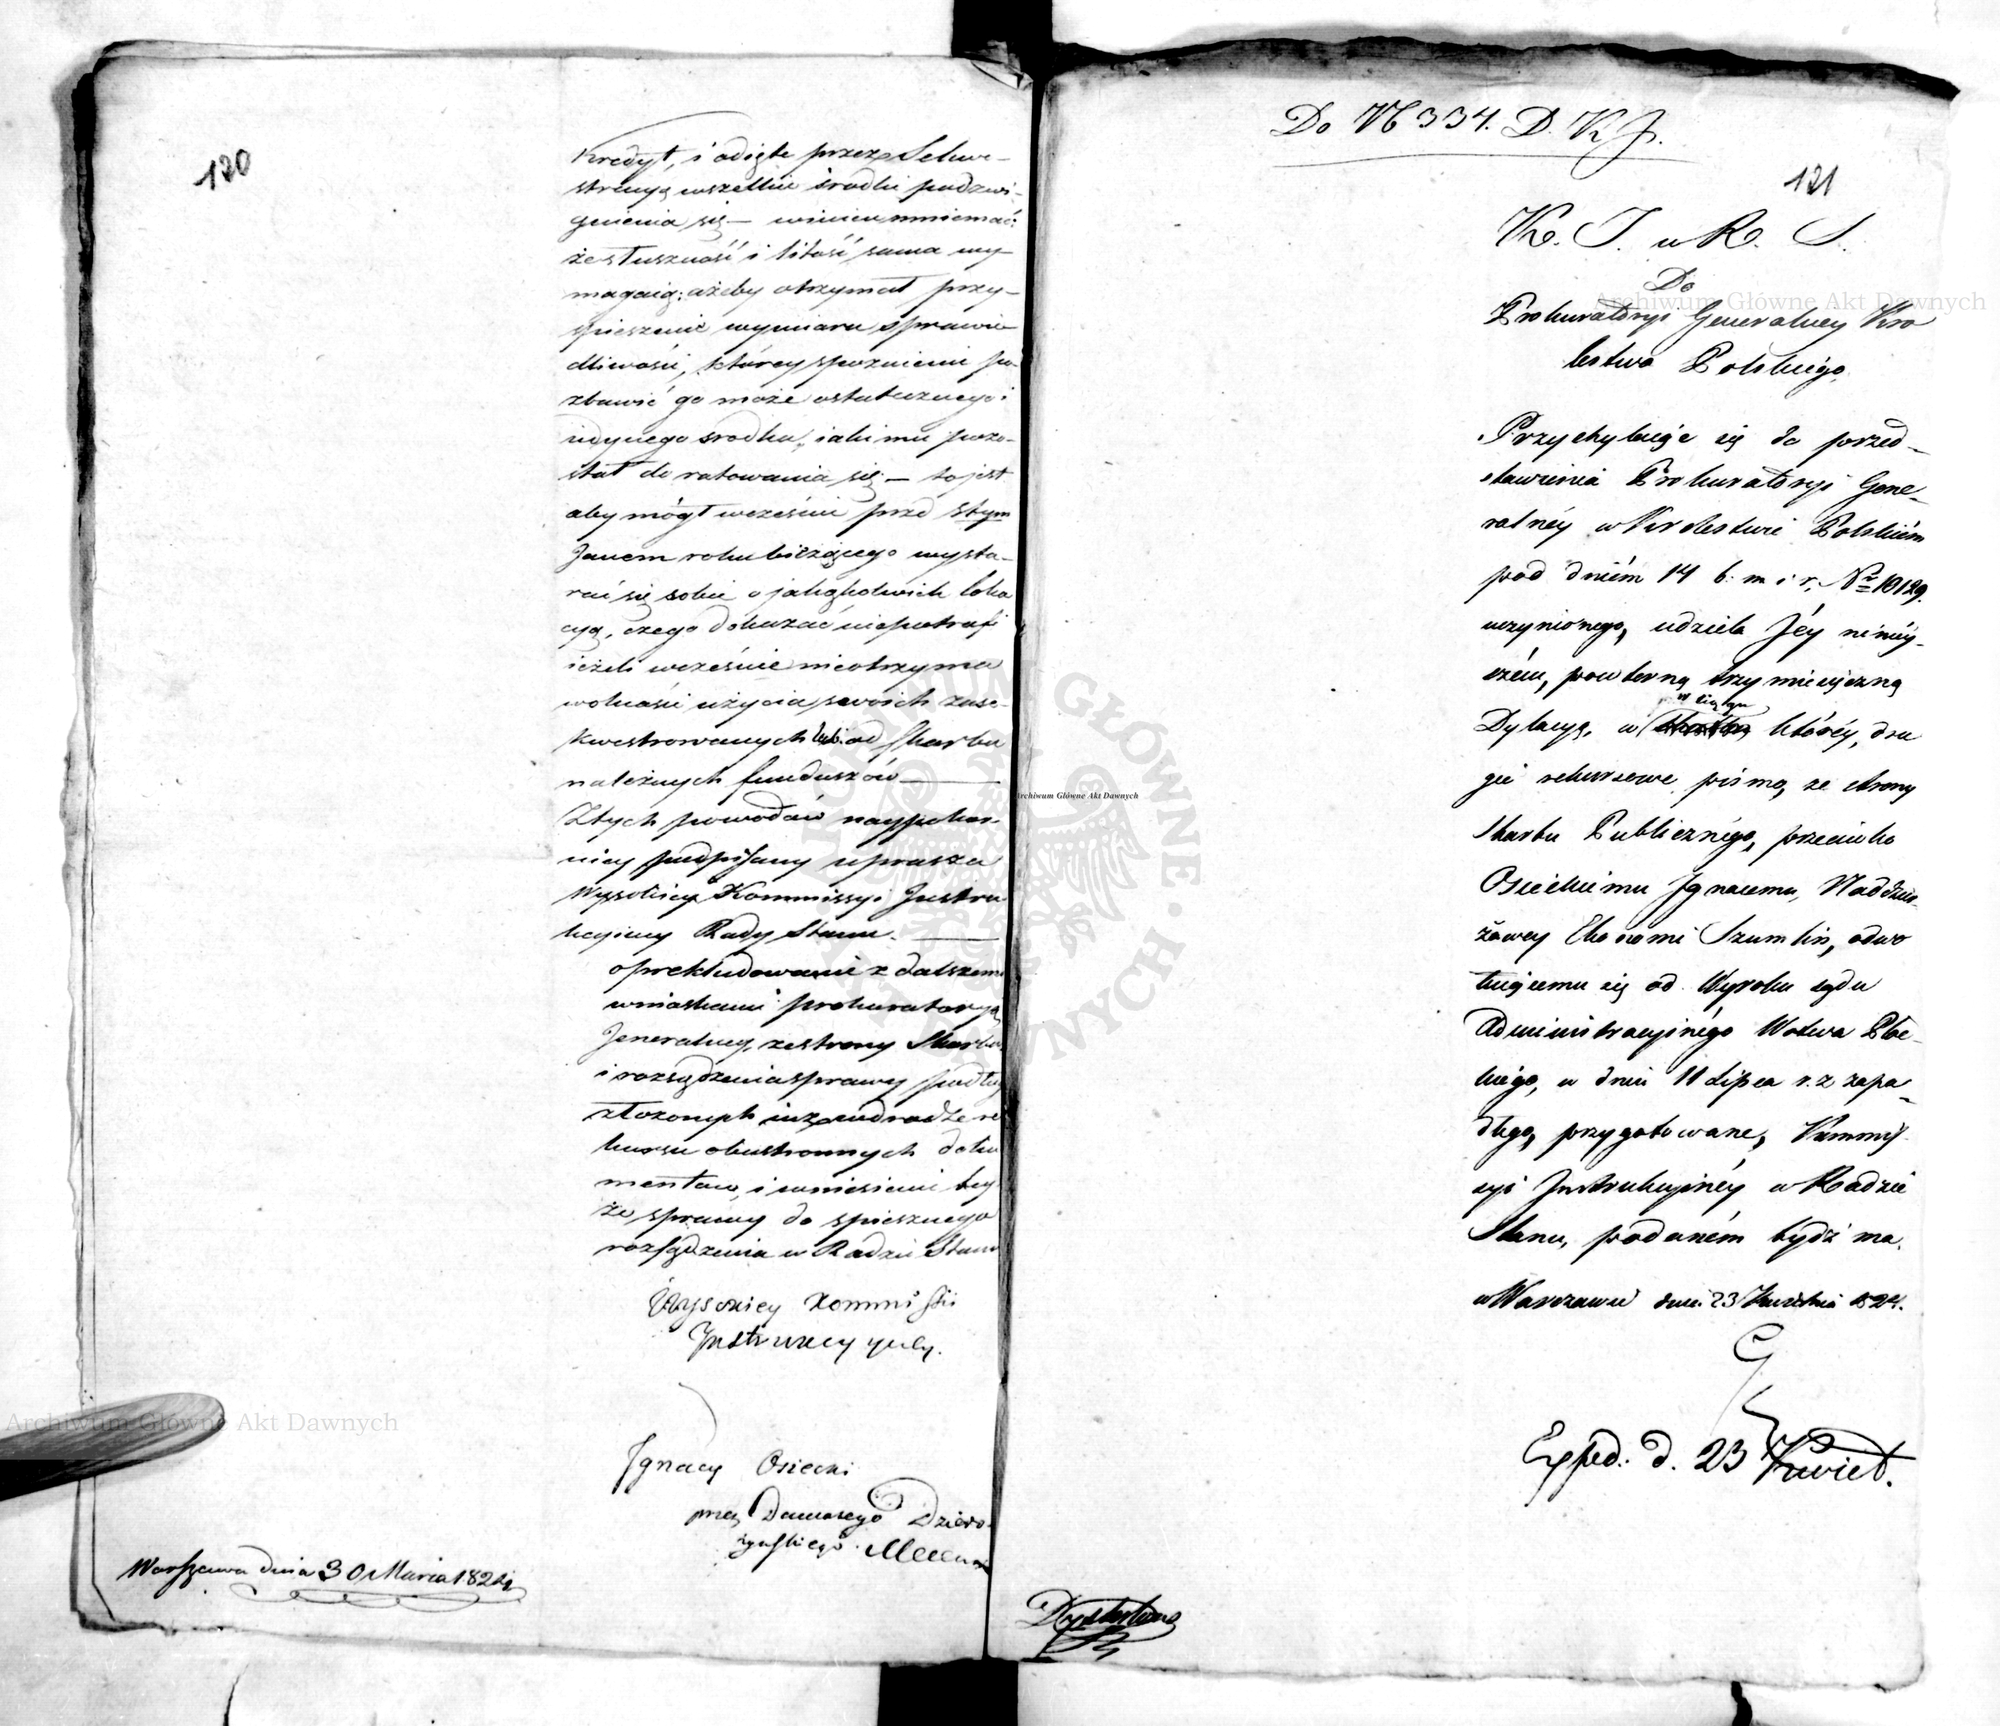 120
Kredyt, i odięte przez Sekwe-
stracyą wszelkie srodki podzwi-
gnienia się — winien mniemać:
że słuszność i litość sama wy-
magaią: ażeby otrzymał przy-
spieszenie wymiaru sprawie-
dliwości, którey spoznienie po-
zbawić go może ostatecznego i
iedynego srodka, iaki mu pozo-
stał do ratowania się — to jest
aby mógł wcześnie przed Stym
Janem roku bieżącego wysta-
rać się sobie o jakążkolwiek loka
cyą, czego dokazać niepotrafi
ieżeli wcześnie nieotrzyma
wolności użycia swoich zase-
kwestrowanych lub od Skarbu
należnych funduszów —
Ztych powodów naypokor-
niey podpisany uprasza
Wysokiey Kommissyi Instru
kcyiney Rady Stanu. —
o prekludowanie z dalszemi
wnioskami prokuratoryą
Jeneralney, ze strony Skarbu,
i rozsądzenia sprawy podług
złożonych iuż w drodze re
kursu obustronnych doku
mentów, i wniesienie tey
że sprawy do spiesznego
rozsądzenia w Radzie Stanu
Wysokiey Kommissii
Instrukcyyney.
Ignacy Osiecki
przez Damasego Dziero-
żyńskiego Mecenasa
Warszawa dnia 30 Marca 1824
Do N 334. D. K J.
121
K. I. w R. S.
Do
Prokuratoryi Generalney Kro
lestwa Polskiego
Przychylaiąc się do przed-
stawienia Prokuratoryi Gene-
ralnéy w Krolestwie Polskiém
pod dniém 14 b. m i r, Nr 10129.
uczynionego, udziela Jéy niniéy-
szém, powtorną trzymiesięczną
w ciągu
Dylacyą, w któréy, dru
gie rekursowe pismo, ze strony
Skarbu Publicznégo, przeciwko
Osieckiemu Ignacemu, Naddzier-
żawcy Ekonomi Szumlin, odwo
łuiącemu się od Wyroku sądu
Administracyinégo Wodwa Płoc-
kiego, w dniu 11 Lipca r. z zapa-
dłego, przygotowane, Kommis
syi Instrukcyinéy w Radzie
Stanu, podaném bydź ma.
w Warszawie dnia 23 Kwietnia 1824.
Exped. d. 23 Kwiet.
Archiwum Główne Akt Dawnych
Archiwum Główne Akt Dawnych
Archiwum Główne Akt Dawnych